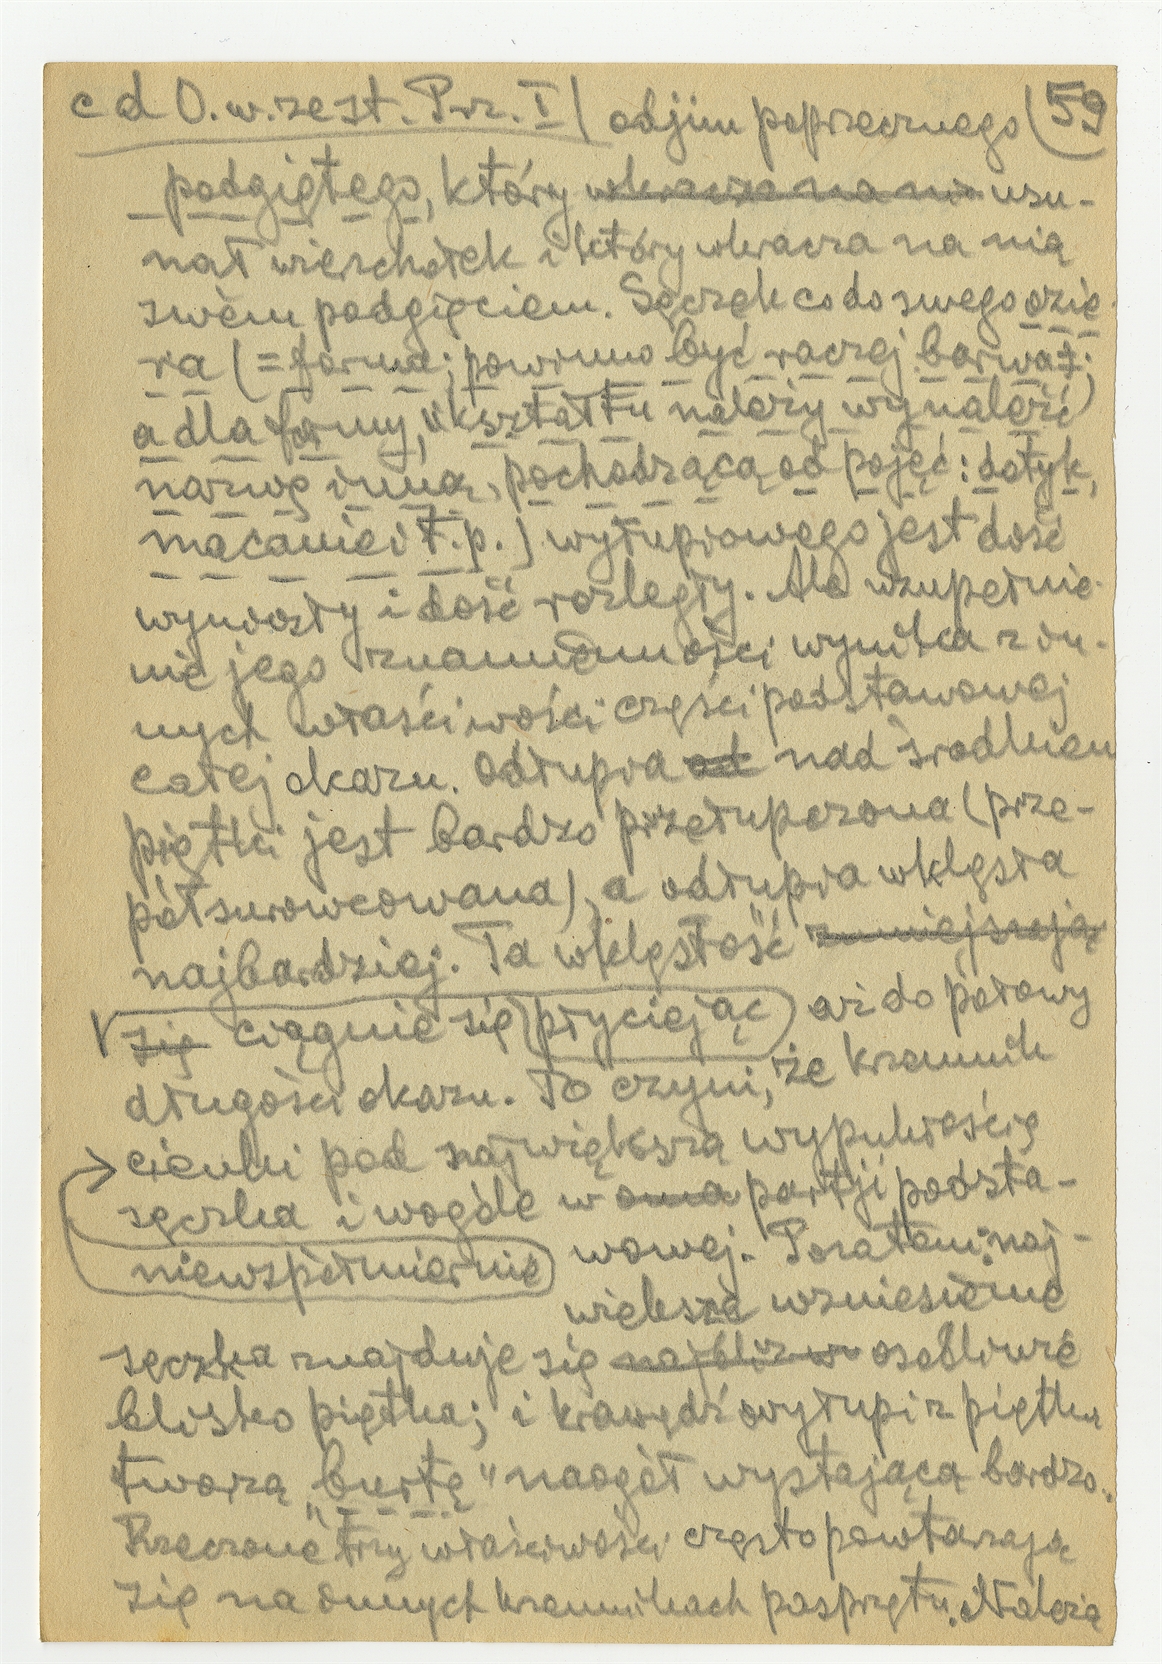 c d O. w. zest. Prz. I | odjim poprzecznego (59
podgiętego, który wkracza na nią usu-
nął wierzchołek i który wkracza na nią
swém podgięciem. Sęczek co do swego ozię-
ra (= forma; powinno być raczej barwa;
a dla formy, "kształtu należy wynaleźć)
nazwę inną, pochodzącą od pojęć: dotyk,
macanie i t. p.) wyłupiowego jest dość
wyniosły i dość rozległy. Ale wzupełnie-
nie jego znamienności wynika z in-
nych właściwości części podstawowej
całej okazu. Odłupia od nad środkiem
piętki jest bardzo przełupczona (prze-
półsurowcowana), a odłupia wklęsła
najbardziej. Ta wklęsłość zmniejszają
się ciągnie się płyciejąc aż do połowy
długości okazu. To czyni, że krzemnik
cienki pod największą wypukłością
sęczka i wogóle w ona partji podsta-
niewspółmiernie wowej. Pozatem: naj-
większe wzniesienie
sęczka znajduje się najbliżw osobliwie
blisko piętka; i krawędź wyłupi z piętką
tworzą "burtę" naogół wystającą bardzo.
Rzeczone trzy właściwości często powtarzają
się na innych krzemnikach posprzętu. Należą